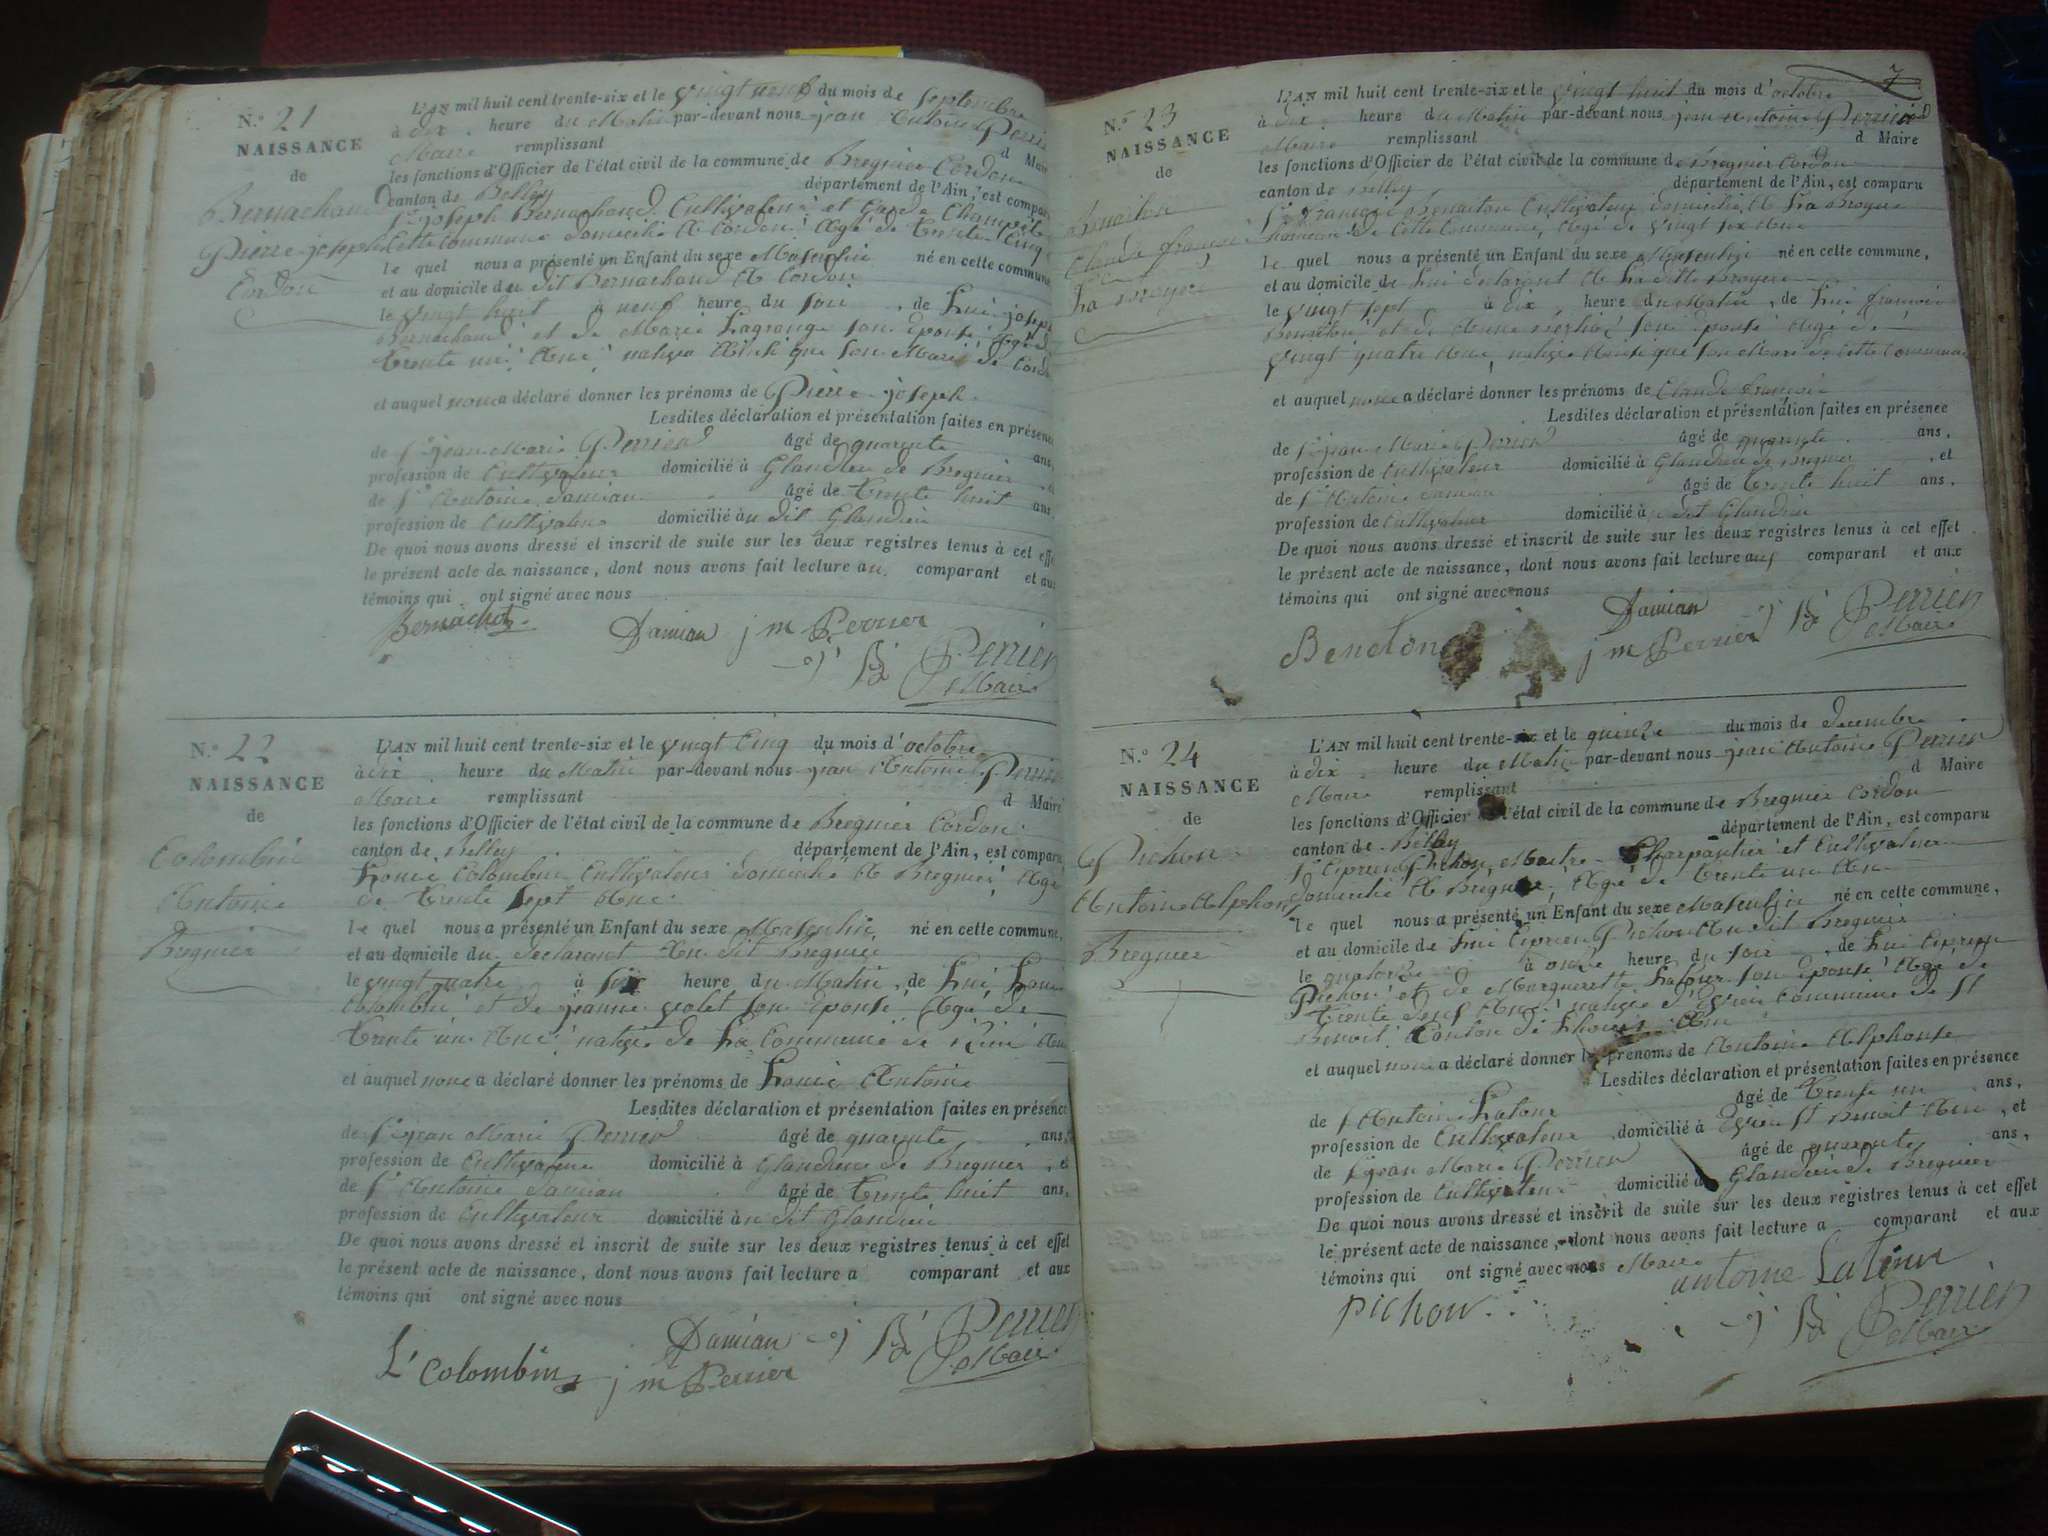 N.° 21
NAISSANCE
de
Bernachand
Pierre joseph
Cordon
L'AN mil huit cent trente-six et le vingt neuf du mois de Septembre
à dix heure du Matin par-devant nous jean Antoine Perrier
Maire remplissant d Maire
les fonctions d'Officier de l'état civil de la commune de Bregnier Cordon
canton de Belley département de l'Ain, est comparu
S.r joseph Bernachand Cultivateur et Garde Champetre
Cette Commune domicilié A Cordon Agé de Trente Cinq
le quel nous a présenté un Enfant du sexe Masculin né en cette commune
et au domicile du dit Bernachand A Cordon
le vingt huit à neuf heure du soir, de Lui joseph
Bernachand et de Marie Lagrange son épouse Agé de
Trente un Ans native Ainsi que son Mari de Cordon
et auquel nous a déclaré donner les prénoms de Pierre joseph
Lesdites déclaration et présentation faites en présence
de S.r jean Marie Perrier âgé de quarante ans,
profession de Cultivateur domicilié à Glandieu de Bregnier
de S.r Antoine Damian âgé de Trente huit ans
profession de Cultivateur domicilié au dit Glandieu
De quoi nous avons dressé et inscrit de suite sur les deux registres tenus à cet effet
le présent acte de naissance, dont nous avons fait lecture au comparant et aux
témoins qui ont signé avec nous
Damian j m Perrier
Perrier
Maire
N.° 22
NAISSANCE
de
Colombin
Antoine
Bregnier
L'AN mil huit cent trente-six et le vingt Cinq du mois d'octobre
à dix heure du Matin par-devant nous jean Antoine Perrier
Maire remplissant d Maire
les fonctions d'Officier de l'état civil de la commune de Bregnier Cordon
canton de Belley département de l'Ain, est comparu
Louis Colombin Cultivateur domicilié A Bregnier Agé
de Trente Sept Ans
le quel nous a présenté un Enfant du sexe Masculin né en cette commune,
et au domicile du declarant Au dit Bregnier
le vingt quatre à six heure du Matin, de Lui Louis
Colombin et de jeanne violet son épouse Agé de
Trente un Ans native de La Commune de
et auquel nous a déclaré donner les prénoms de Louis Antoine
Lesdites déclaration et présentation faites en présence
de S.r jean Marie Perrier âgé de quarante ans,
profession de Cultivateur domicilié à Glandieu de Bregnier, et
de S.r Antoine Damian âgé de Trente huit ans,
profession de Cultivateur domicilié au dit Glandieu
De quoi nous avons dressé et inscrit de suite sur les deux registres tenus à cet effet
le présent acte de naissance, dont nous avons fait lecture a comparant et aux
témoins qui ont signé avec nous
Damian Perrier
L. Colombin j m Perrier Maire
7
N.° 23
NAISSANCE
de
Benaiton
Claude françois
La Broyere
L'AN mil huit cent trente-six et le vingt huit du mois d'octobre
à dix heure du Matin par-devant nous jean Antoine Perrier
Maire remplissant d Maire
les fonctions d'Officier de l'état civil de la commune de Bregnier Cordon
canton de Belley département de l'Ain, est comparu
S.r françois Benaiton Cultivateur domicilié A La Broyere
hameau de Cette Commune, Agé de vingt six Ans
le quel nous a présenté un Enfant du sexe Masculin né en cette commune,
et au domicile de Lui declarant A La ditte Broyere
le vingt sept à dix heure du Matin, de Lui françois
Benaiton et de son épouse Agé de
vingt quatre Ans native Ainsi que son Mari de Cette Commune
et auquel nous a déclaré donner les prénoms de Claude françois
Lesdites déclaration et présentation faites en présence
de S.r jean Marie Perrier âgé de quarante ans,
profession de Cultivateur domicilié à Glandieu de Bregnier, et
de S.r Antoine Damian âgé de Trente huit ans,
profession de Cultivateur domicilié au dit Glandieu
De quoi nous avons dressé et inscrit de suite sur les deux registres tenus à cet effet
le présent acte de naissance, dont nous avons fait lecture aux comparant et aux
témoins qui ont signé avec nous
Damian Perrier
Beneton j m Perrier Maire
N.° 24
NAISSANCE
de
Pichon
Antoine Alphonse
Bregnier
L'AN mil huit cent trente-six et le quinze du mois de decembre
à dix heure du Matin par-devant nous jean Antoine Perrier
Maire remplissant d Maire
les fonctions d'Officier de l'état civil de la commune de Bregnier Cordon
canton de Belley département de l'Ain, est comparu
S.r Ciprien Pichon, Maitre Charpantier et Cultivateur
domicilié A Bregnier, Agé de Trente un An
le quel nous a présenté un Enfant du sexe Masculin né en cette commune,
et au domicile de Lui Ciprien Pichon Au dit Bregnier
le quatorze à onze heure du soir, de Lui Ciprien
Pichon et de Marguerette Latour son épouse Agé de
Trente deux Ans native d'Evieu Commune de St
Benoit Canton de Lhouis Ain
et auquel nous a déclaré donner les prénoms de Antoine Alphonse
Lesdites déclaration et présentation faites en présence
de S Antoine Latour âgé de Trente un ans,
profession de Cultivateur domicilié à Evieu St Benoit Ain, et
de S.r jean Marie Perrier âgé de quarante ans,
profession de Cultivateur domicilié à Glandieu de Bregnier
De quoi nous avons dressé et inscrit de suite sur les deux registres tenus à cet effet
le présent acte de naissance, dont nous avons fait lecture a comparant et aux
témoins qui ont signé avec nous Maire
Pichon antoine Latour
Perrier
Maire